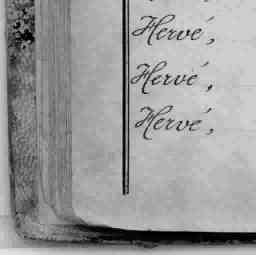 Hervé,
Hervé,
Hervé,